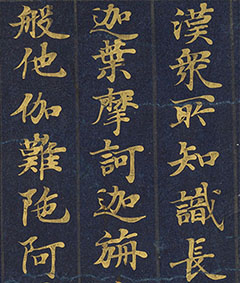 漢眾所知識長
迦葉摩訶迦旃
般他伽難陁阿